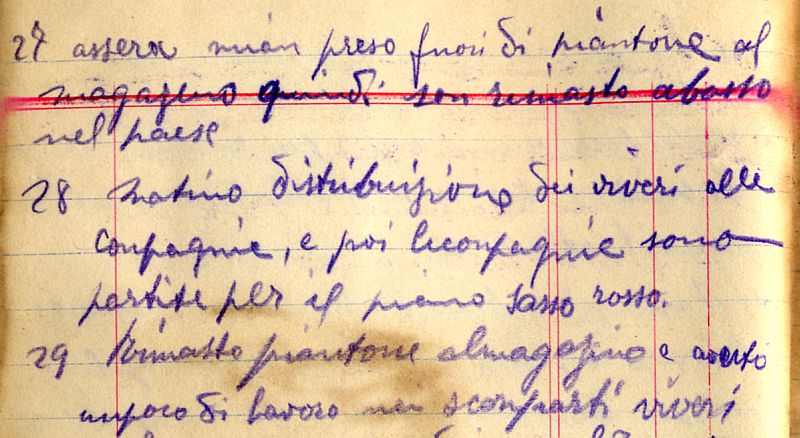 27 assera mián preso fuori di piantone al
magazeno quindi son rimasto abasso
nel paese
28 Matino distribuizione dei viveri alle
conpagnie, e poi leconpagnie sono
partite per il piano Sasso rosso.
29 Rimasto piantone almagazino e averto
unpoco di lavoro nei sconparti viveri